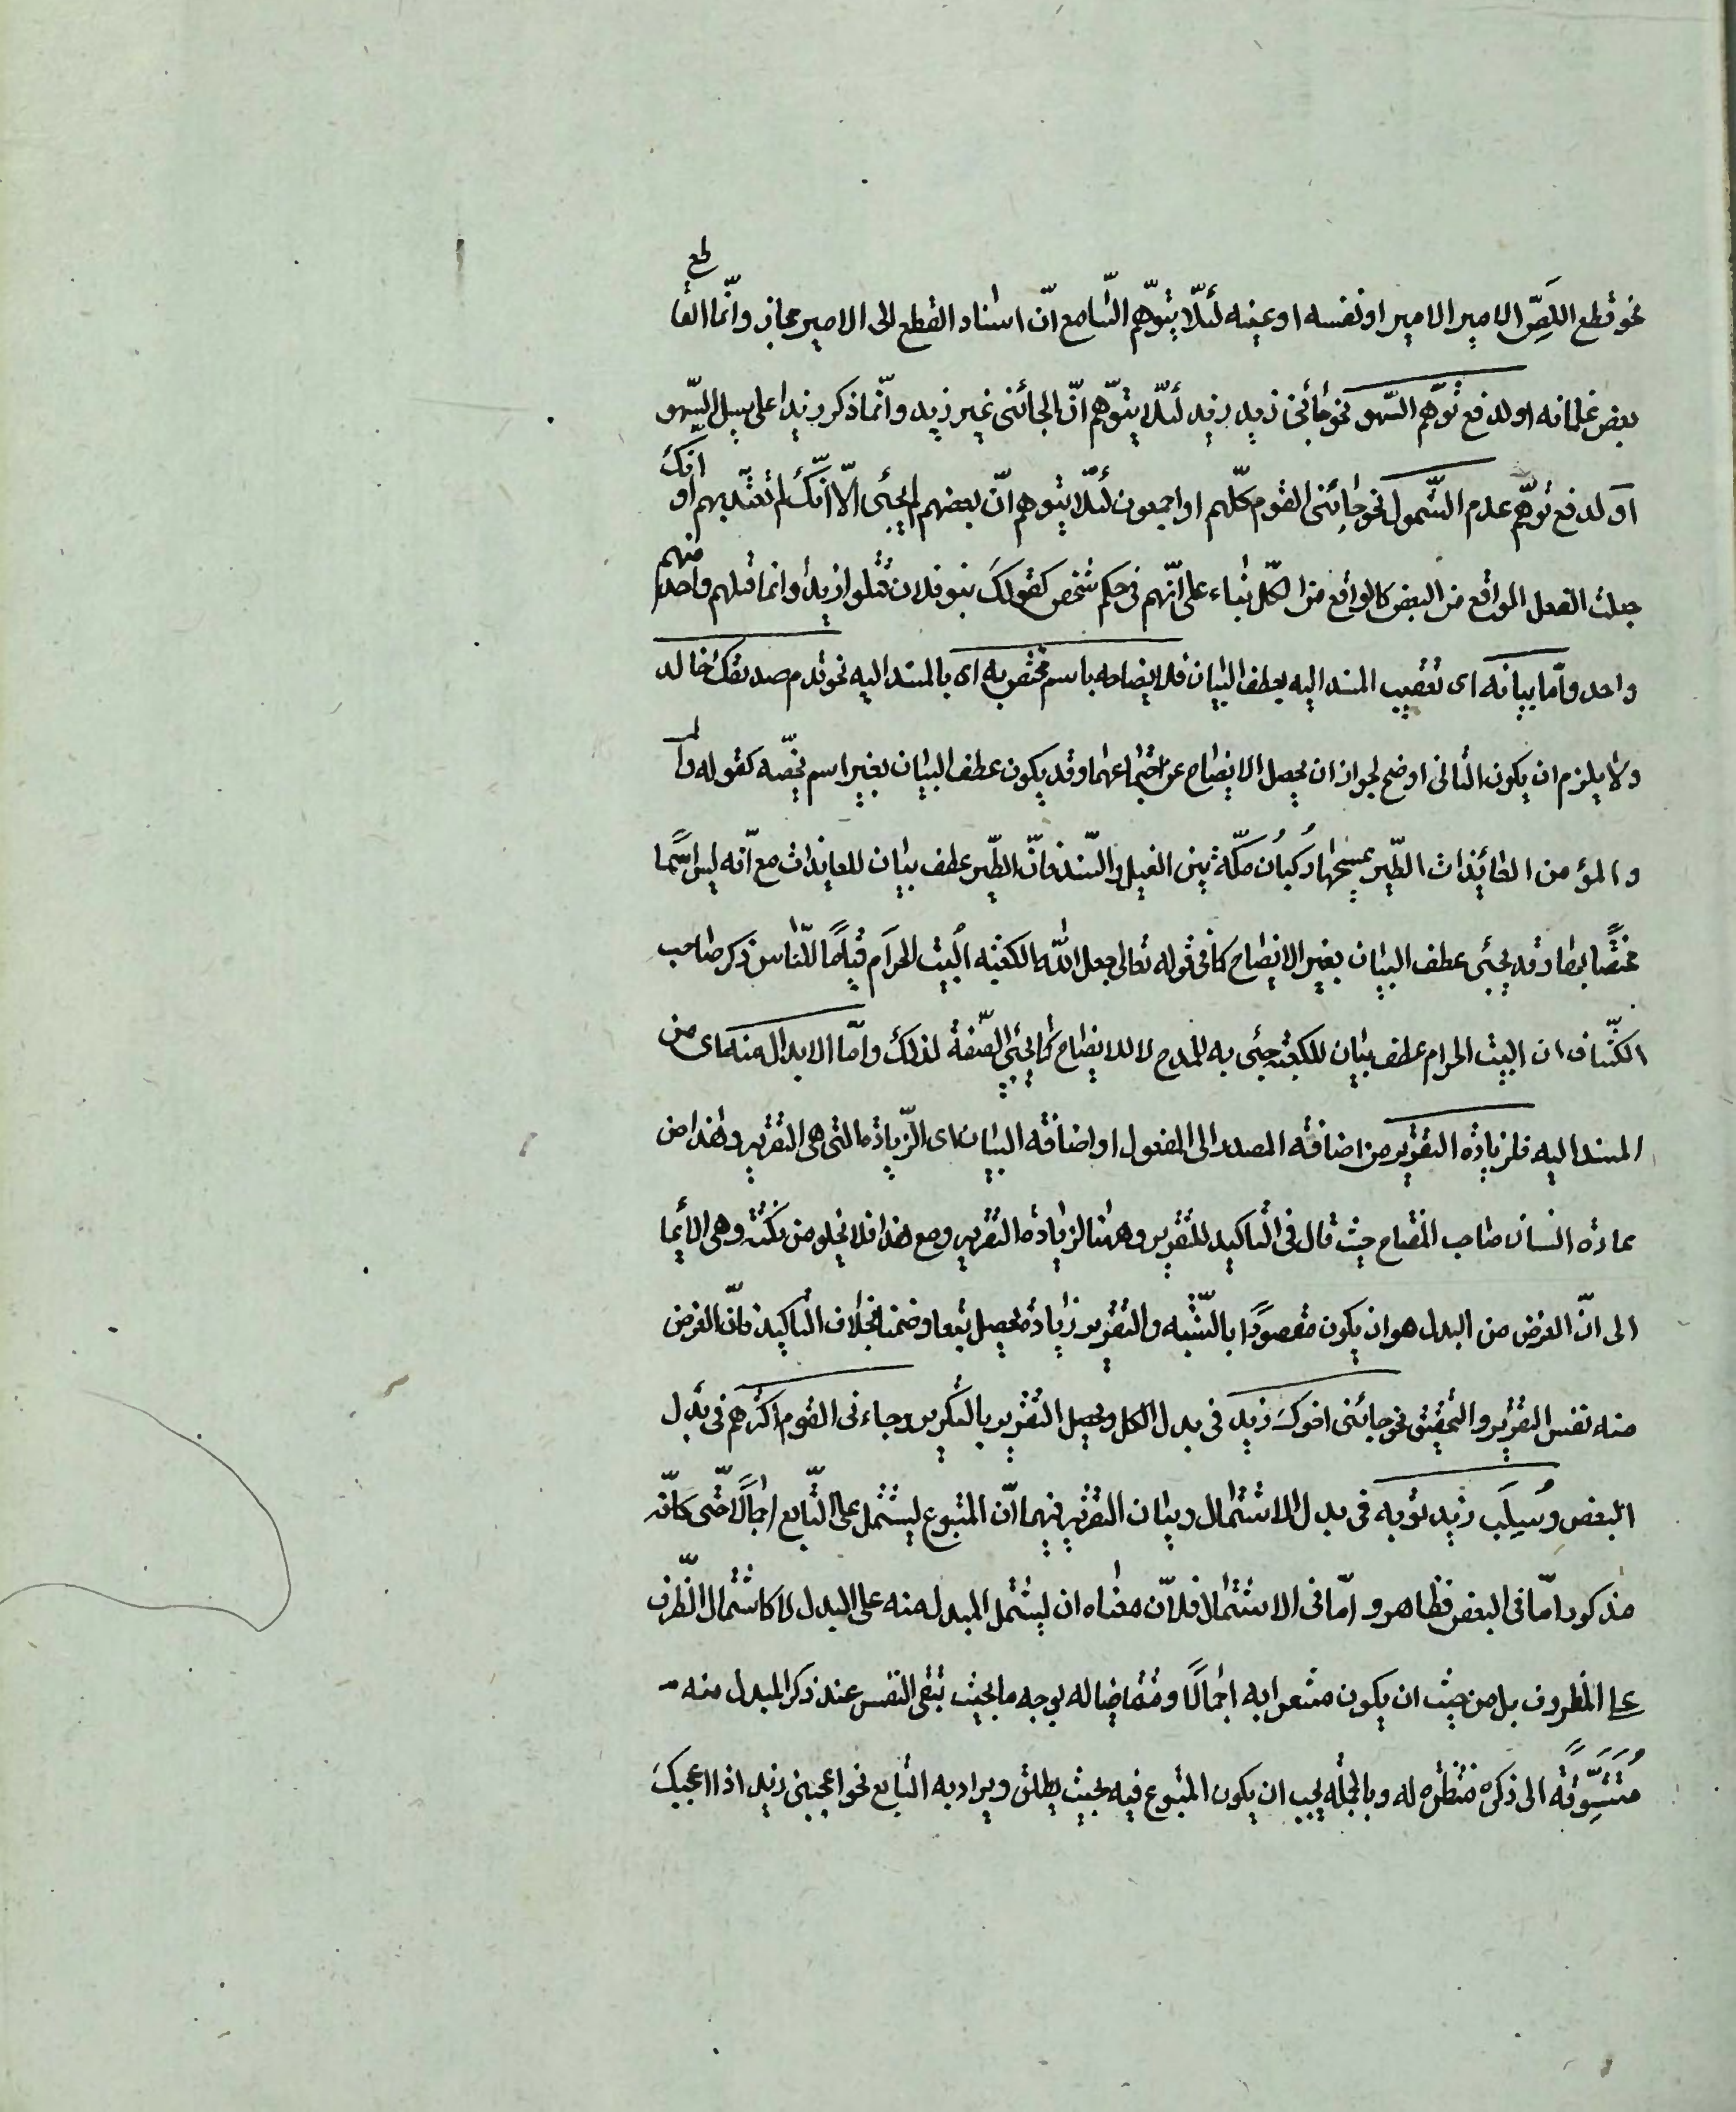 نحو قطع اللصّ الامير الامير او نفسه او عينه لئلّا يتوّهم السّامع انّ اسناد القطع الى الامير مجاز وانّما القاطع
بعض غلمانه او لدفع توّهم السّهو نحو جائنى زيد زيد لئلّا يتوّهم انّ الجائنى غير زيد وانّما ذكر زيدا على سبيل السّهو
او لدفع توّهم عدم الشّمول نحو جائنى القوم كلّهم او اجمعون لئلّا يتوهم انّ بعضهم لم يجئى الّا انّك لم تعتدّ بهم او انّك
جعلت الفعل الواقع من البعض كالواقع من الكلّ بناء على انّهم فى حكم شخص كقولك بنو فلان قتلوا زيدا وانما قتلهم واحد منهم
واحد وامّا بيانه اى تعقيب المسند اليه بعطف البيان فلايضاحه باسم مختصّ به اى بالمسند اليه نحو قدم صديقك خالد
ولا يلزم ان يكون الثانى اوضح لجواز ان يحصل الايضاح عن اجتماعهما وقد يكون عطف البيان بغير اسم يخصّه كقوله
والمؤمن العائذات الطّير يمسحها ركبان مكّة بين الغيل والسّند فانّ الطّير عطف بيان للعايذات مع انّه ليس اسمًا
مختصًّا بها وقد يجئى عطف البيان بغير الايضاح كما فى قوله تعالى جعل الله الكعبه البيت الحرام قيامًا للنّاس ذكر صاحب
الكشّاف ان البيت الحرام عطف بيان للكعبة جئى به للمدح لا للايضاح كما يجئى الصّفة لذلك وامّا الابدال منه اى من
المسند اليه فلزيادة التقرير من اضافة المصدر الى المفعول او اضافة البيان اى الزّيادة التى هى التقرير وهذا من
عادة افتنان صاحب المفتاح حيث قال فى التاكيد للتقرير وههنا لزيادة التقرير ومع هذا فلا يخلو من نكتة وهى الايما
الى انّ الغرض من البدل هو ان يكون مقصودًا بالنّسبه والتقرير زيادة يحصل تبعا وضمنا بخلاف التاكيد فانّ الغرض
منه نفس التقرير والتحقيق نحو جائنى اخوك زيد فى بدل الكل ويحصل التقرير بالتكرير وجاءنى القوم اكثرهم فى بدل
البعض وسُلِبَ زيد ثوبه فى بدل الاشتمال وبيان التقرير فيهما انّ المتبوع يشتمل على التّابع اجمالًا حتّى كانّه
مذكور امّا فى البعض فظاهر و امّا فى الاشتمال فلانّ معناه ان يشتمل المبدل منه على البدل لا كاشتمال الظّرف
على المظروف بل من حيث ان يكون مشعرا به اجمالًا ومتقاضيا له بوجه ما بحيث تبقى النفس عند ذكر المبدل منه
متشوّقة الى ذكره منتظره له وبالجمله يجب ان يكون المتبوع فيه بحيث يطلق ويراد به التابع نحو اعجبنى زيد اذا اعجبك